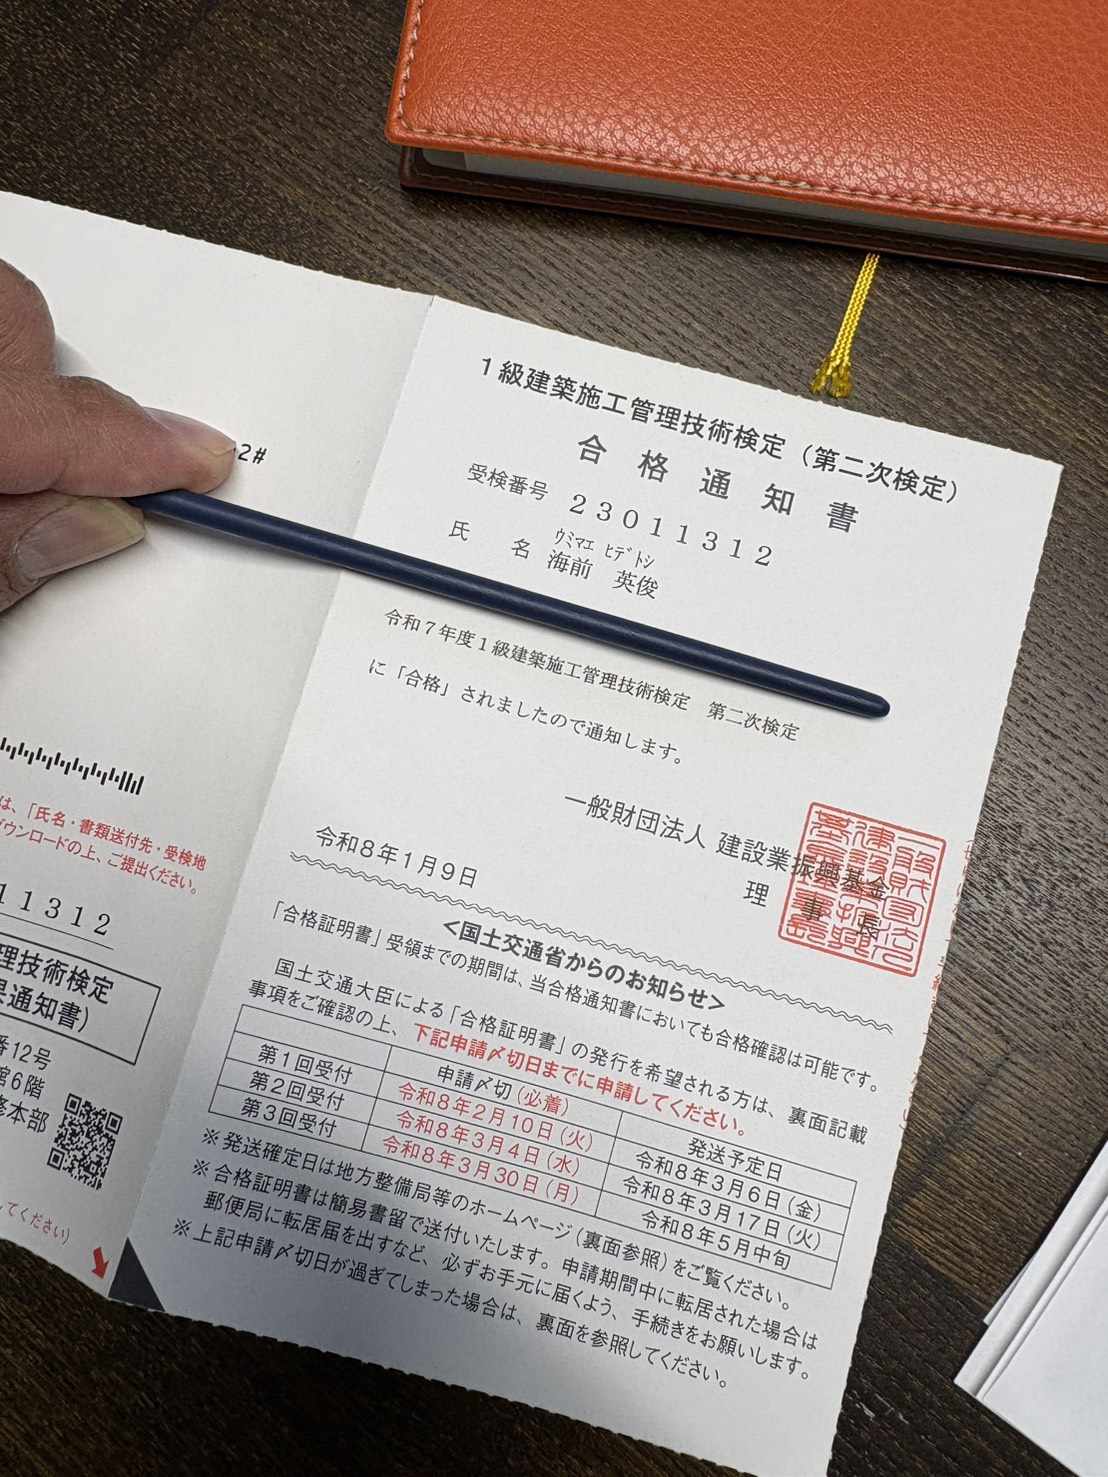 2#
は、「氏名・書類送付先・受検地
ダウンロードの上、ご提出ください。
11312
理技術検定
果通知書)
番12号
館6階
修本部
してください)
1級建築施工管理技術検定（第二次検定）
合格通知書
受検番号 23011312
ウミマエ ヒデトシ
氏名 海前 英俊
令和7年度1級建築施工管理技術検定 第二次検定
に「合格」されましたので通知します。
一般財団法人 建設業振興基金
理事長
令和8年1月9日
<国土交通省からのお知らせ>
「合格証明書」受領までの期間は、当合格通知書においても合格確認は可能です。
国土交通大臣による「合格証明書」の発行を希望される方は、裏面記載
事項をご確認の上、下記申請〆切日までに申請してください。
申請〆切（必着） 発送予定日
第1回受付 令和8年2月10日（火） 令和8年3月6日（金）
第2回受付 令和8年3月4日（水） 令和8年3月17日（火）
第3回受付 令和8年3月30日（月） 令和8年5月中旬
※発送確定日は地方整備局等のホームページ（裏面参照）をご覧ください。
※合格証明書は簡易書留で送付いたします。申請期間中に転居された場合は
郵便局に転居届を出すなど、必ずお手元に届くよう、手続きをお願いします。
※上記申請〆切日が過ぎてしまった場合は、裏面を参照してください。